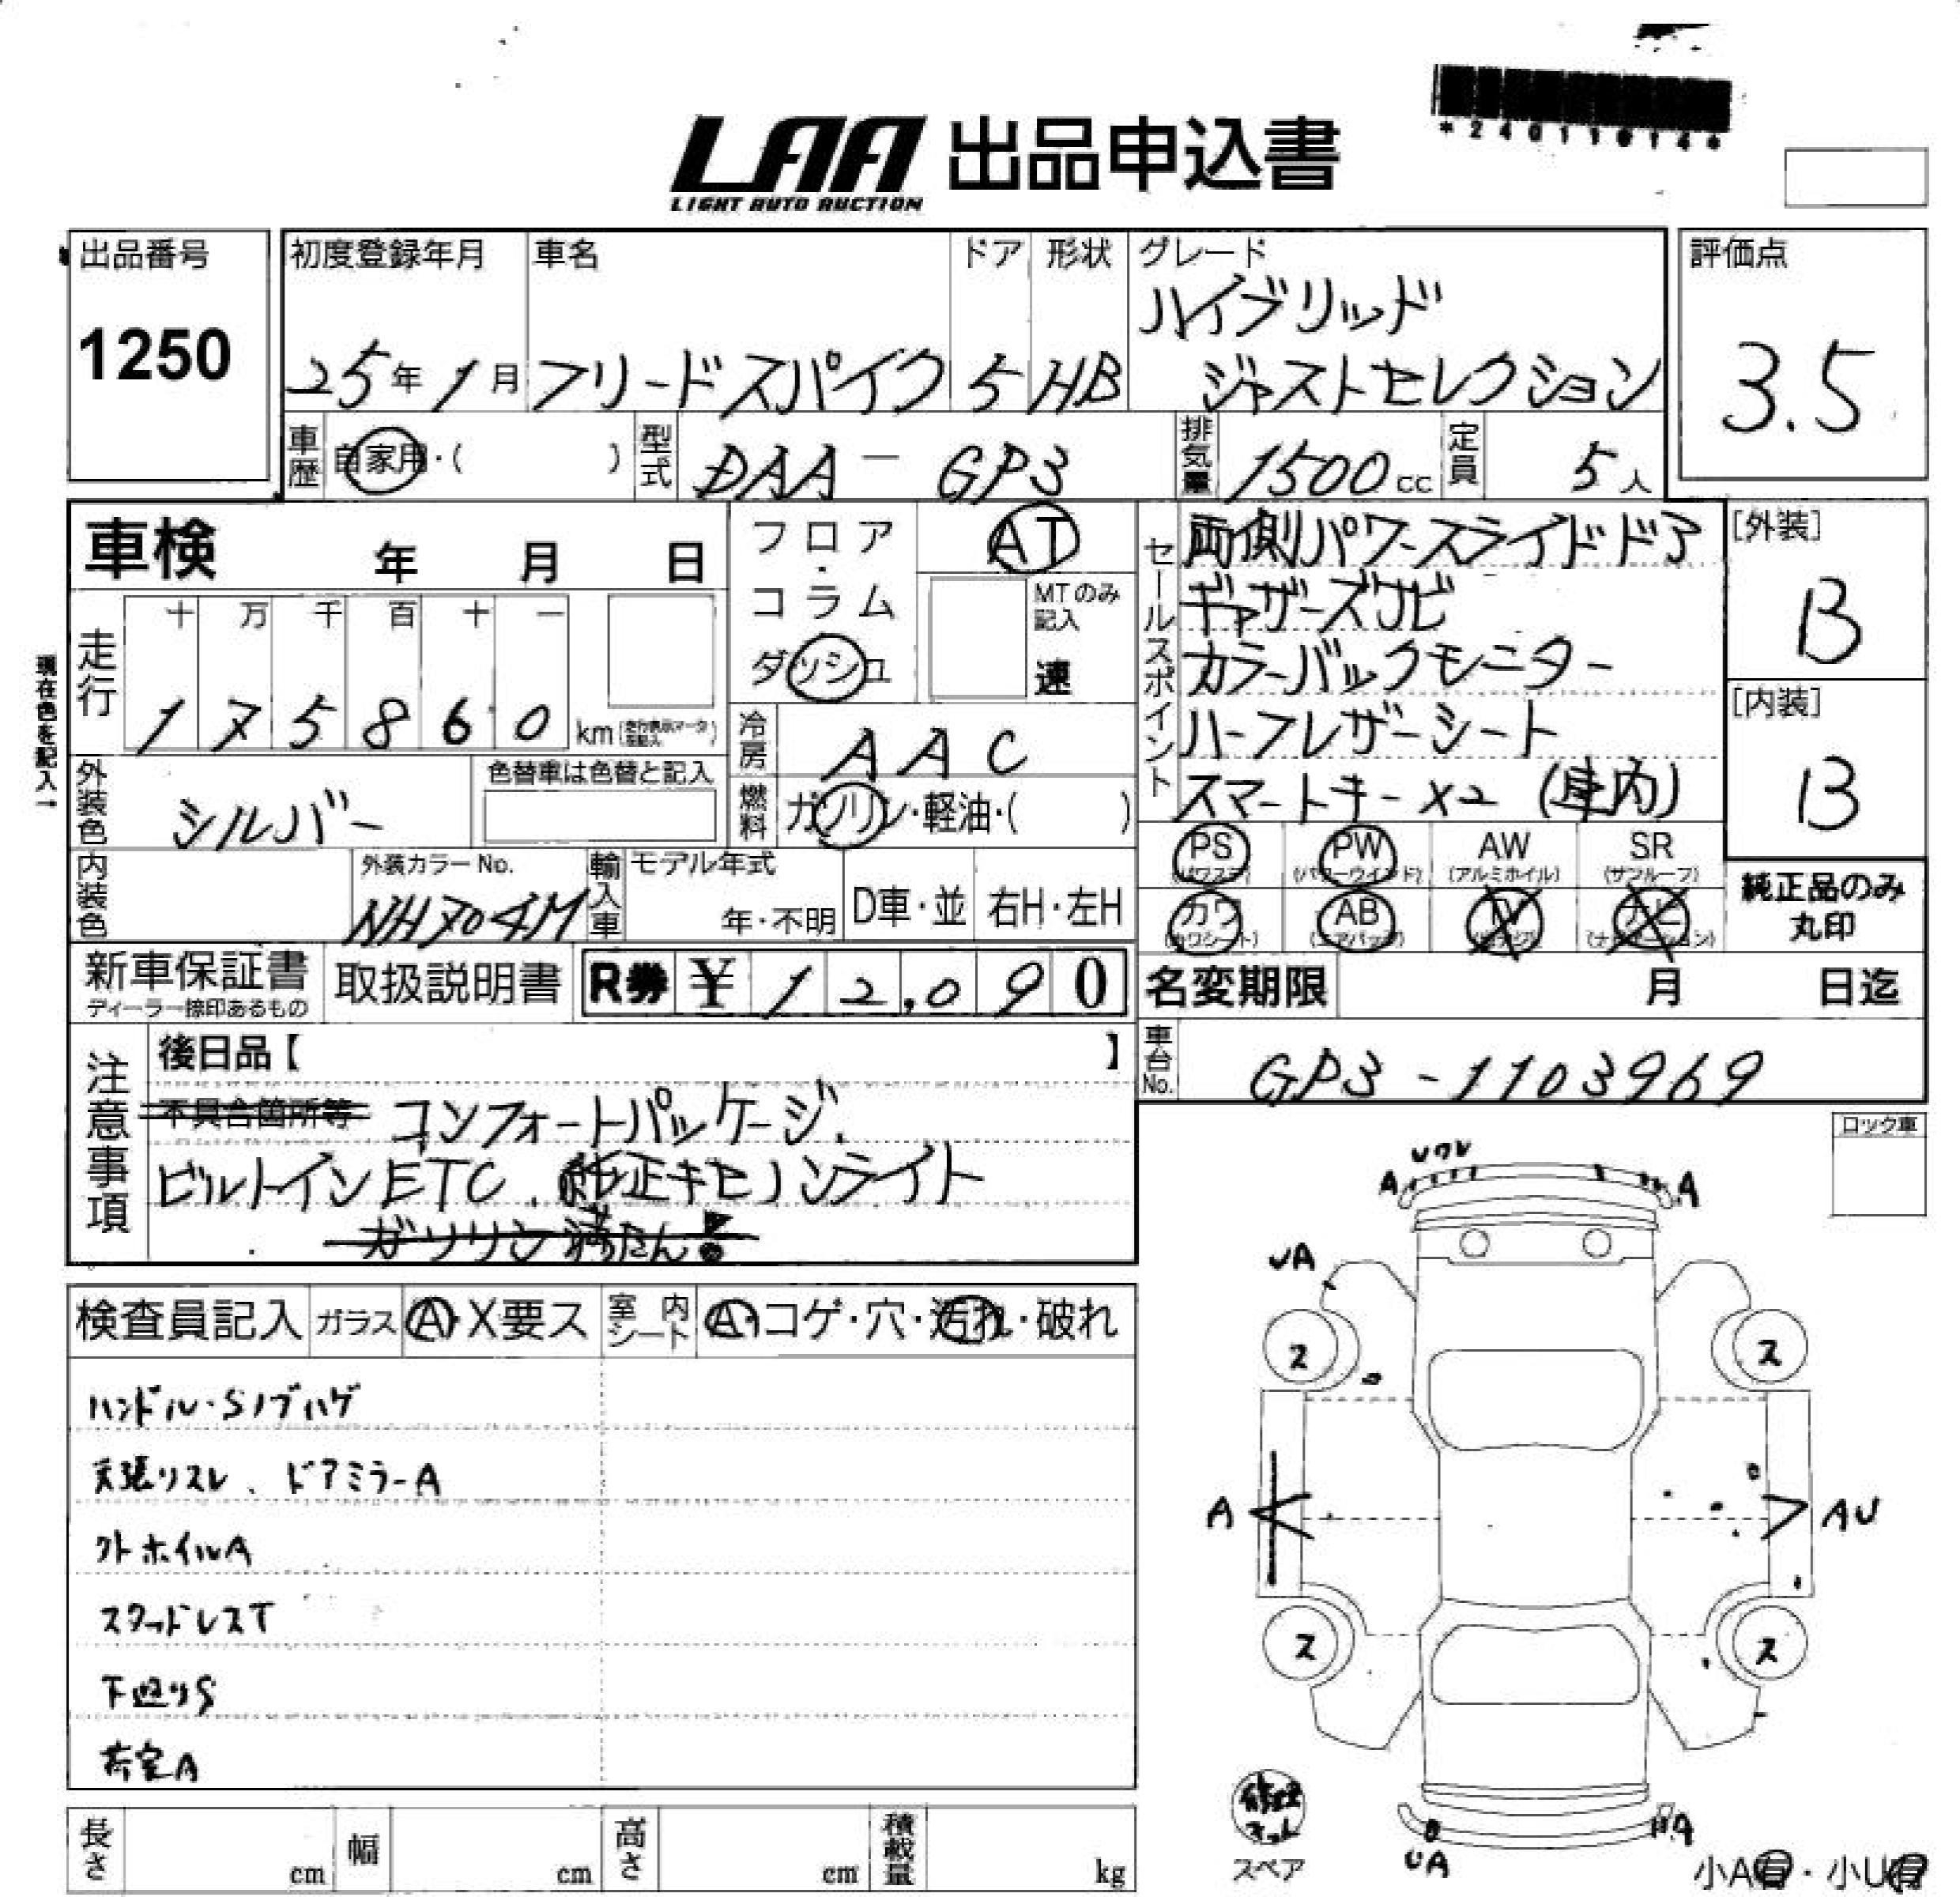 *240110144*
LAA 出品申込書
LIGHT AUTO AUCTION
出品番号
1250
初度登録年月
25年1月
車名
フリードスパイク
ドア
5
形状
HB
グレード
ハイブリッド
ジャストセレクション
評価点
3.5
車歴
自家用・( )
型式
DAA-GP3
排気量
1500cc
定員
5人
車検 年 月 日
フロア・コラム
ダッシュ
AT
MTのみ記入
速
現在色を記入→
走行
十 万 千 百 十 一
175860 km
冷房
AAC
燃料
ガソリン・軽油・( )
外装色
シルバー
色替車は色替と記入
内装色
外装カラーNo.
NH704M
輸入車
モデル年式
年・不明
D車・並
右H・左H
セールスポイント
両側パワースライドドア
ギャザーズナビ
カラーバックモニター
ハーフレザーシート
スマートキー×2 (車内)
[外装]
B
[内装]
B
PS (パワステ)
PW (パワーウインド)
AW (アルミホイル)
SR (サンルーフ)
カワ (カワシート)
AB (エアバッグ)
TV
ナビ (ナビゲーション)
純正品のみ
丸印
新車保証書
ディーラー捺印あるもの
取扱説明書
R券 ¥12,090
名変期限 月 日迄
車台No.
GP3-1103969
注意事項
後日品【 】
不具合箇所等 コンフォートパッケージ、
ビルトインETC、純正キセノンライト
ガソリン満たん!
ロック車
検査員記入
ガラス
A・X要ス
室内シート
A・コゲ・穴・汚れ・破れ
ハンドル・Sノブハゲ
天張リスレ、ドアミラーA
クトホイルA
スタッドレスT
下廻りS
荷室A
A
A
UA
ス
ス
A
AU
ス
ス
修理キット
スペア
UA
A
小A有・小U有
長さ cm
幅 cm
高さ cm
積載量 kg